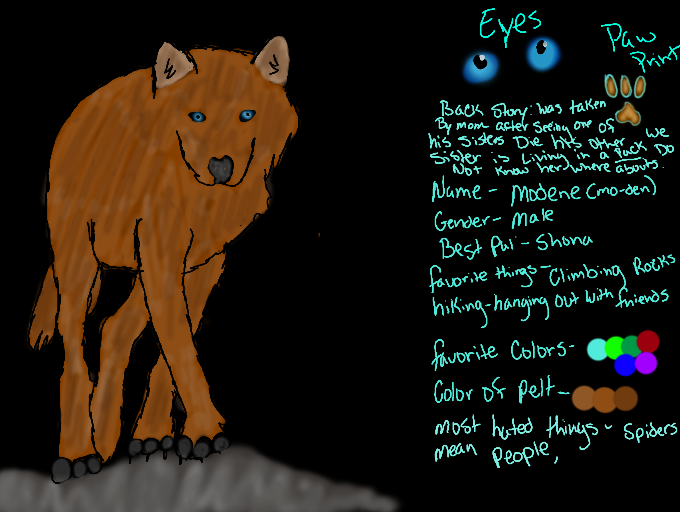 Eyes
Paw
Print
Back Story: was taken
By mom after seeing one of
his sisters Die his other we
Sister is Living in a pack Do
Not know her where abouts.
Name - Modene (mo-den)
Gender - Male
Best Pal - Shona
favorite things - Climbing Rocks
hiking - hanging out with friends
favorite Colors -
Color of Pelt -
most hated things - Spiders
mean People,